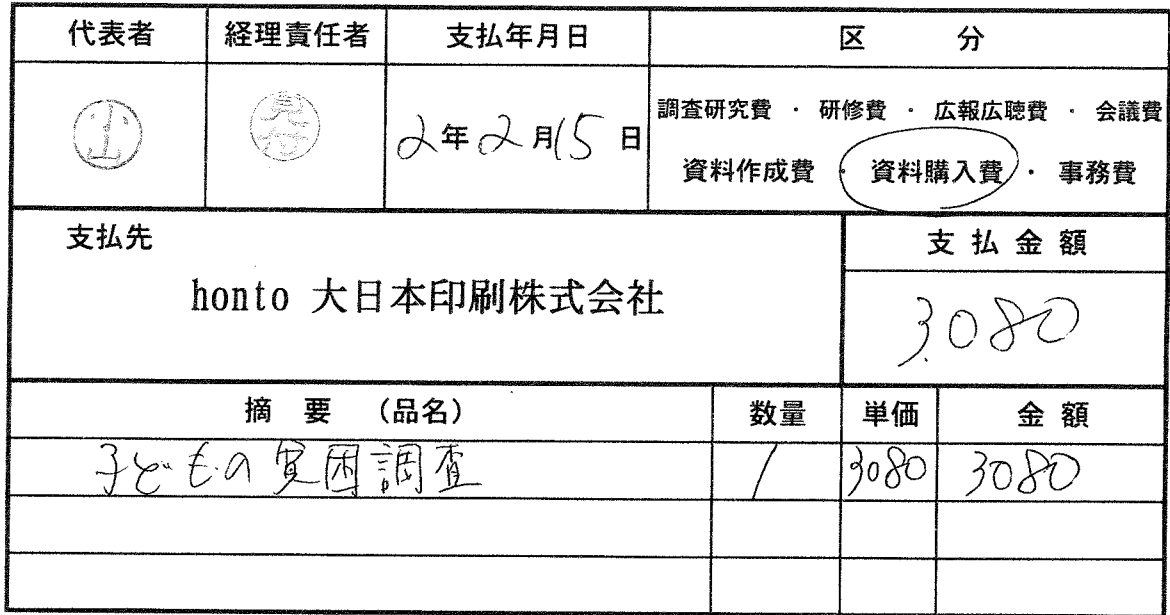 代表者 経理責任者 支払年月日 区 分
小山 見付 2年2月15日
調査研究費 ・ 研修費 ・ 広報広聴費 ・ 会議費
資料作成費 ・ 資料購入費 ・ 事務費
支払先 支払金額
honto 大日本印刷株式会社
3,080
摘 要 (品名) 数量 単価 金額
子どもの貧困調査 1 3080 3080